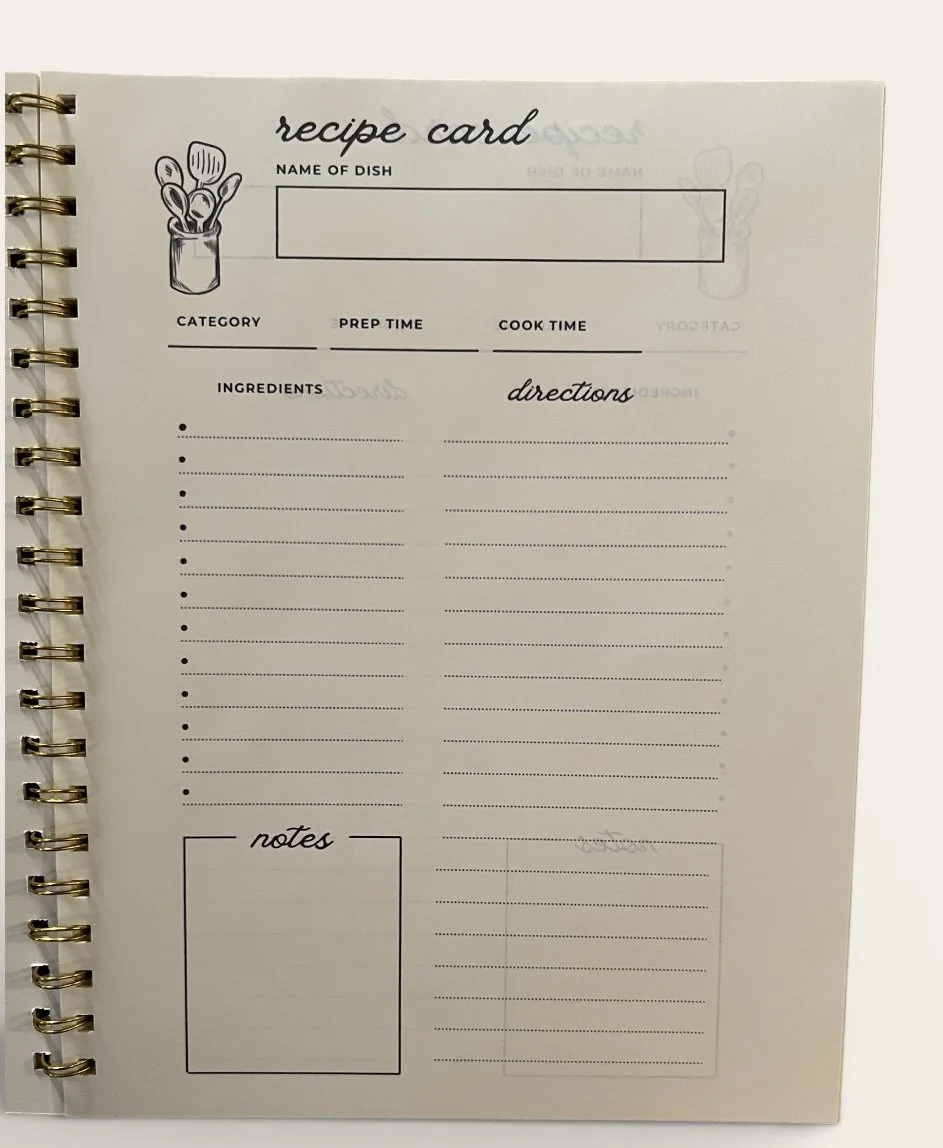 recipe card
NAME OF DISH
CATEGORY PREP TIME COOK TIME
INGREDIENTS directions
notes